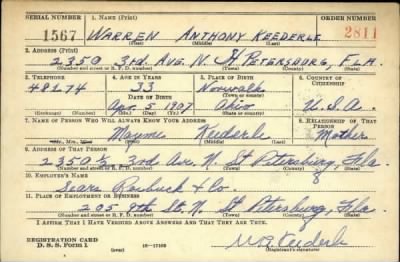 SERIAL NUMBER 1. NAME (Print) ORDER NUMBER
1567 WARREN ANTHONY KEEDERLE 2811
(First) (Middle) (Last)
2. ADDRESS (Print)
2350 3rd. Ave. N. St Petersburg, Fla.
(Number and street or R. F. D. number) (Town) (County) (State)
3. TELEPHONE 4. AGE IN YEARS 5. PLACE OF BIRTH 6. COUNTRY OF CITIZENSHIP
48174 33 Norwalk
DATE OF BIRTH (Town or county)
Apr. 5 1907 Ohio U.S.A.
(Mo.) (Day) (Yr.) (State or country)
7. NAME OF PERSON WHO WILL ALWAYS KNOW YOUR ADDRESS 8. RELATIONSHIP OF THAT PERSON
Keederle Mother
(Mr., Mrs., Miss) (First) (Middle) (Last)
9. ADDRESS OF THAT PERSON
2350 ½ 3rd Ave. N. St Petersburg, Fla.
(Number and street or R. F. D. number) (Town) (County) (State)
10. EMPLOYER'S NAME
Sears Roebuck & Co.
11. PLACE OF EMPLOYMENT OR BUSINESS
205 9th St. N. St Petersburg, Fla.
(Number and street or R. F. D. number) (Town) (County) (State)
I AFFIRM THAT I HAVE VERIFIED ABOVE ANSWERS AND THAT THEY ARE TRUE.
REGISTRATION CARD
D. S. S. Form 1 (over) 16—17105 W A Keederle
(Registrant's signature)